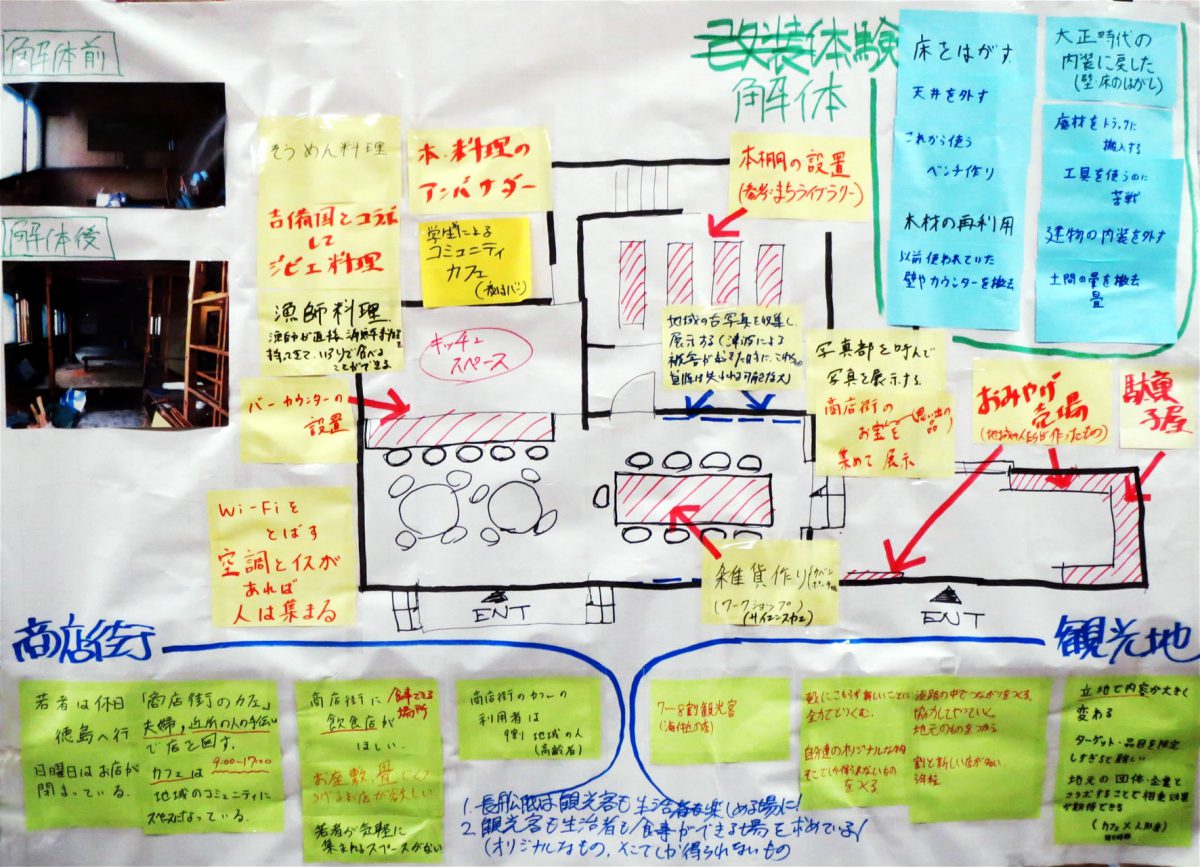 解体前
解体後
改装体験
解体
床をはがす
天井を外す
これから使う
ベンチ作り
木材の再利用
以前使われていた
壁やカウンターを撤去
大正時代の
内装に戻した
(壁・床のはがし)
廃材をトラックに
搬入する
工具を使うのに
苦戦
建物の内装を外す
土間の畳を撤去
畳
そうめん料理
吉備国とコラボ
して
ジビエ料理
漁師料理
持ってきて、いろりで食べる
ことができる
本・料理の
アンバサダー
学生による
コミュニティ
カフェ
(夜はバー)
本棚の設置
(参考:まちライブラリー)
キッチン
スペース
地域の古写真を収集し
展示する(津波による
バーカウンターの
設置
写真部を呼んで
写真を展示する。
商店街の
お宝を
(思い出の
品)
集めて展示
おみやげ
売場
(地域の人たちが作ったもの)
駄菓
子屋
Wi-Fiを
とばす
空調とイスが
あれば
人は集まる
雑貨作り
(ワークショップ)
(サイエンスカフェ)
ENT
ENT
商店街
観光地
若者は休日
徳島へ行く
日曜日はお店が
閉まっている。
「商店街のカフェ」
夫婦,近所の人の手伝い
で店を回す。
カフェは 9:00~17:00
地域のコミュニティに
スペースになっている。
商店街に
食事できる
場所
飲食店が
ほしい。
お座敷、畳でくつ
ろげるお店が欲しい
若者が気軽に
集まれるスペースがない
商店街のカフェの
利用者は
9割 地域の人
(高齢者)
7~8割観光客
全力でとりくむ。
淡路の中でつながりをつくる。
協力してやっていく
地元のものをつかう
割と新しい店が多い
立地で内容が大きく
変わる
ターゲット・品目を推定
しすぎると難しい
地元の団体・企業と
コラボすることで相乗効果
が期待できる
1. 長船松原は観光客も生活者も楽しめる場に!
2. 観光客も生活者も食事ができる場を求めている!
(オリジナルなもの、そこでしか得られないもの